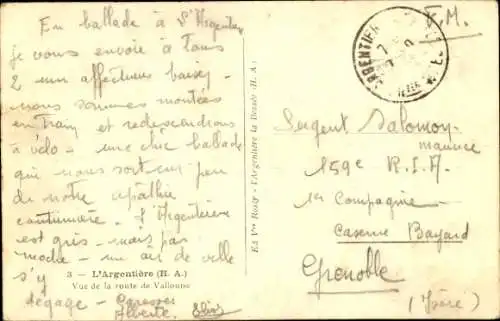 En ballade à l'Argentière
je vous envoie à Tous
2 un affectueux baiser -
nous sommes montées
en Train et redescendrons
à vélo - une chic ballade
qui nous sort un peu
de notre apathie
coutumière. L'Argentière
est gris - mais pas
moche - un air de ville
s'y
dégage - Caresses
Alberte.
3 - L'Argentière (H. A.)
Vue de la route de Vallouise
L'Argentière la Bessée (H. A.)
F.M.
ARGENTIER
Sergent Salomon
Maurice
159e R.I.A.
1re Compagnie
Caserne Bayard
Grenoble
(Isère)